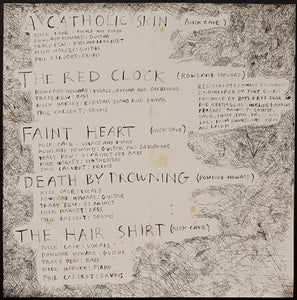 A CATHOLIC SKIN (NICK CAVE)
NICK CAVE: VOCALS AND PIANO
ROWLAND HOWARD: GUITAR
TRACY PEW: BASS AND CLARINET
MICK HARVEY: GUITAR
PHIL CALVERT: DRUMS
THE RED CLOCK (ROWLAND HOWARD)
ROWLAND HOWARD: VOCALS, GUITAR AND SAXOPHONE
MICK HARVEY: ELECTRIC PIANO AND GUITAR
PHIL CALVERT: DRUMS
FAINT HEART (NICK CAVE)
NICK CAVE: VOCALS AND PIANO
ROWLAND HOWARD: GUITAR AND SAXOPHONE
TRACY PEW: CLARINET AND BASS
MICK HARVEY: SYNTHESIZER
PHIL CALVERT: DRUMS
DEATH BY DROWNING (ROWLAND HOWARD)
NICK CAVE: VOCALS
ROWLAND HOWARD: GUITAR
TRACY PEW: CLARINET
MICK HARVEY: BASS
PHIL CALVERT: DRUMS
THE HAIR SHIRT (NICK CAVE)
NICK CAVE: VOCALS
ROWLAND HOWARD: GUITAR
TRACY PEW: BASS
MICK HARVEY: PIANO
PHIL CALVERT: DRUMS